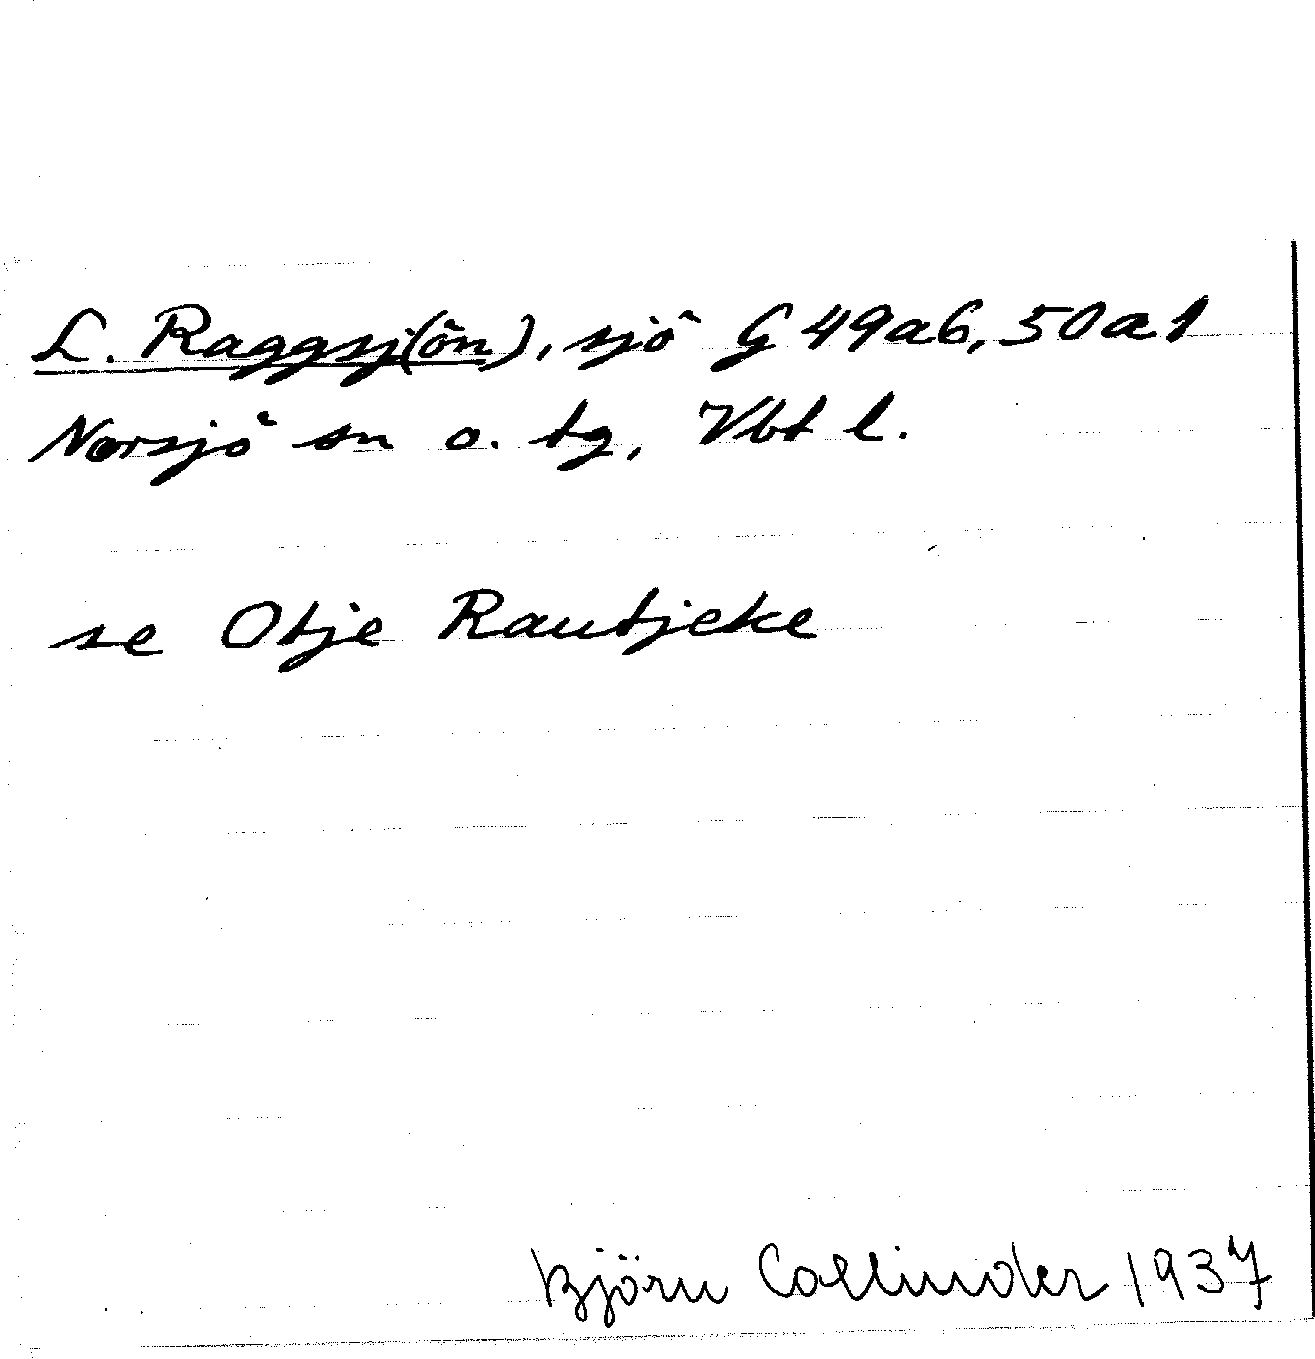 L. Raggsj(ön), sjö G 49a6, 50a1
Norsjö sn o. tg, Vbt l.
se Otje Rautjeke
Björn Collinder 1937